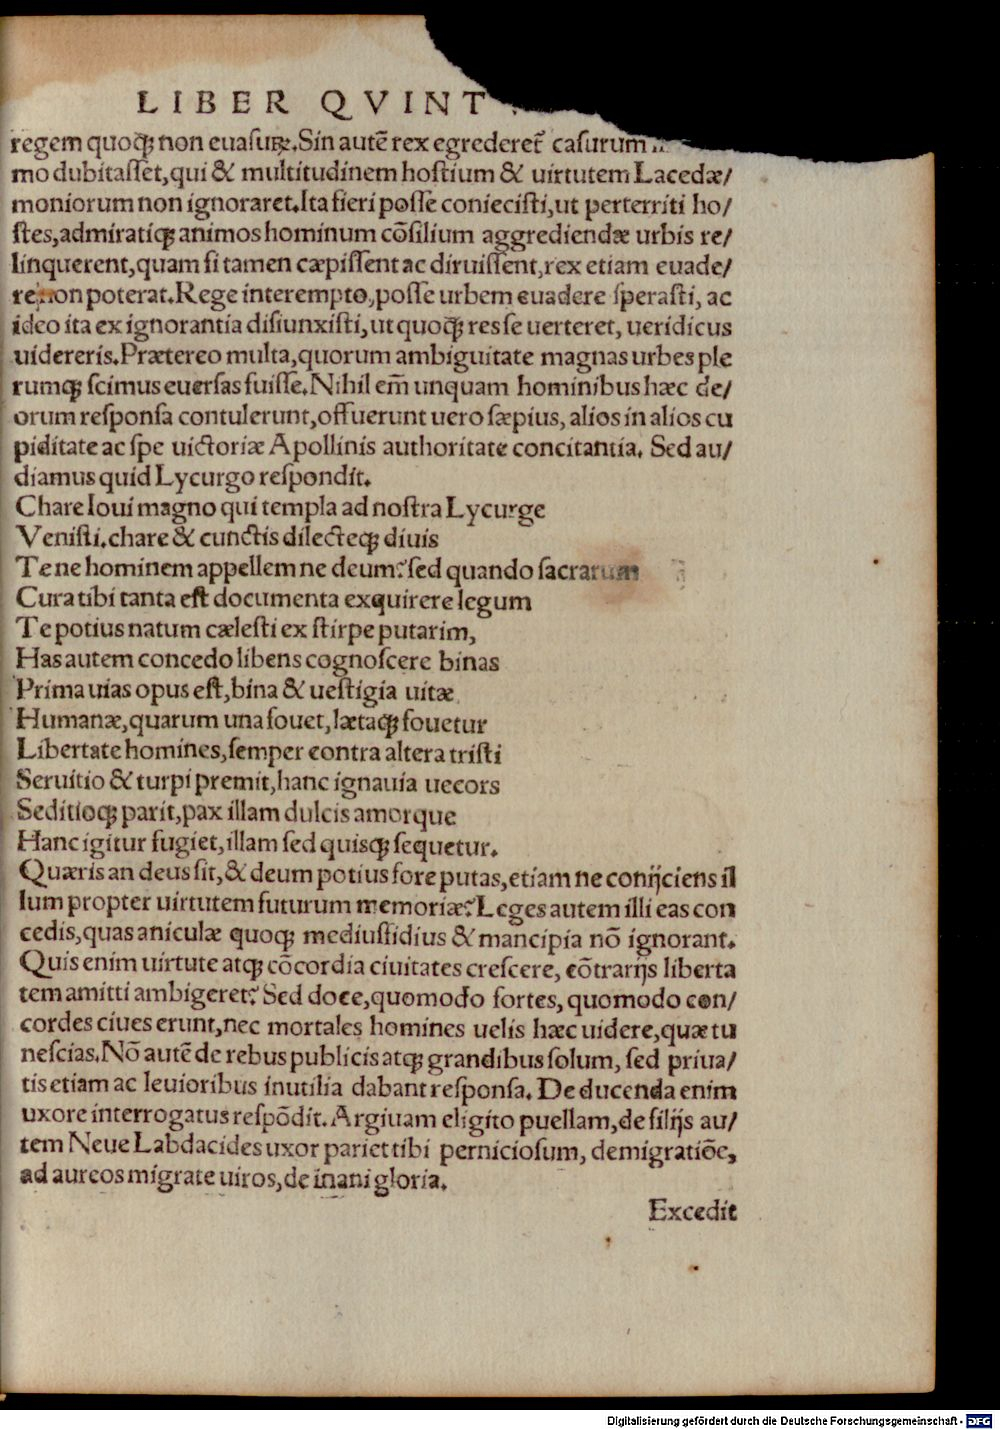 LIBER QVINT
regem quoqꝫ non euasuꝝ. Sin autē rex egrederet᷑ casurum
mo dubitasset, qui & multitudinem hostium & uirtutem Lacedæ/
moniorum non ignoraret. Ita fieri posse coniecisti, ut perterriti ho/
stes, admiratiqꝫ animos hominum cōsilium aggrediendæ urbis re/
linquerent, quam si tamen cæpissent ac diruissent, rex etiam euade/
re non poterat. Rege interempto, posse urbem euadere sperasti, ac
ideo ita ex ignorantia disiunxisti, ut quoqꝫ res se uerteret, ueridicus
uidereris. Prætereo multa, quorum ambiguitate magnas urbes ple
rumqꝫ scimus euersas fuisse. Nihil em̄ unquam hominibus hæc de/
orum responsa contulerunt, offuerunt uero sæpius, alios in alios cu
piditate ac spe uictoriæ Apollinis authoritate concitantia. Sed au/
diamus quid Lycurgo respondit.
Chare Ioui magno qui templa ad nostra Lycurge
Venisti. chare & cunctis dilecteqꝫ diuis
Te ne hominem appellem ne deum? sed quando sacrarum
Cura tibi tanta est documenta exquirere legum
Te potius natum cælesti ex stirpe putarim,
Has autem concedo libens cognoscere binas
Prima uias opus est, bina & uestigia uitæ
Humanæ, quarum una fouet, lætaqꝫ fouetur
Libertate homines, semper contra altera tristi
Seruitio & turpi premit, hanc ignauia uecors
Seditioqꝫ parit, pax illam dulcis amorque
Hanc igitur fugiet, illam sed quisqꝫ sequetur.
Quæris an deus sit, & deum potius fore putas, etiam ne conijciens il
lum propter uirtutem futurum memoriæ? Leges autem illi eas con
cedis, quas aniculæ quoqꝫ mediustidius & mancipia nō ignorant.
Quis enim uirtute atqꝫ cōcordia ciuitates crescere, cōtrarijs liberta
tem amitti ambigeret? Sed doce, quomodo fortes, quomodo con/
cordes ciues erunt, nec mortales homines uelis hæc uidere, quæ tu
nescias. Nō autē de rebus publicis atqꝫ grandibus solum, sed priua/
tis etiam ac leuioribus inutilia dabant responsa. De ducenda enim
uxore interrogatus respōdit. Argiuam eligito puellam, de filijs au/
tem Neue Labdacides uxor pariet tibi perniciosum, demigratiōe,
ad aureos migrate uiros, de inani gloria.
Excedit
Digitalisierung gefördert durch die Deutsche Forschungsgemeinschaft - DFG